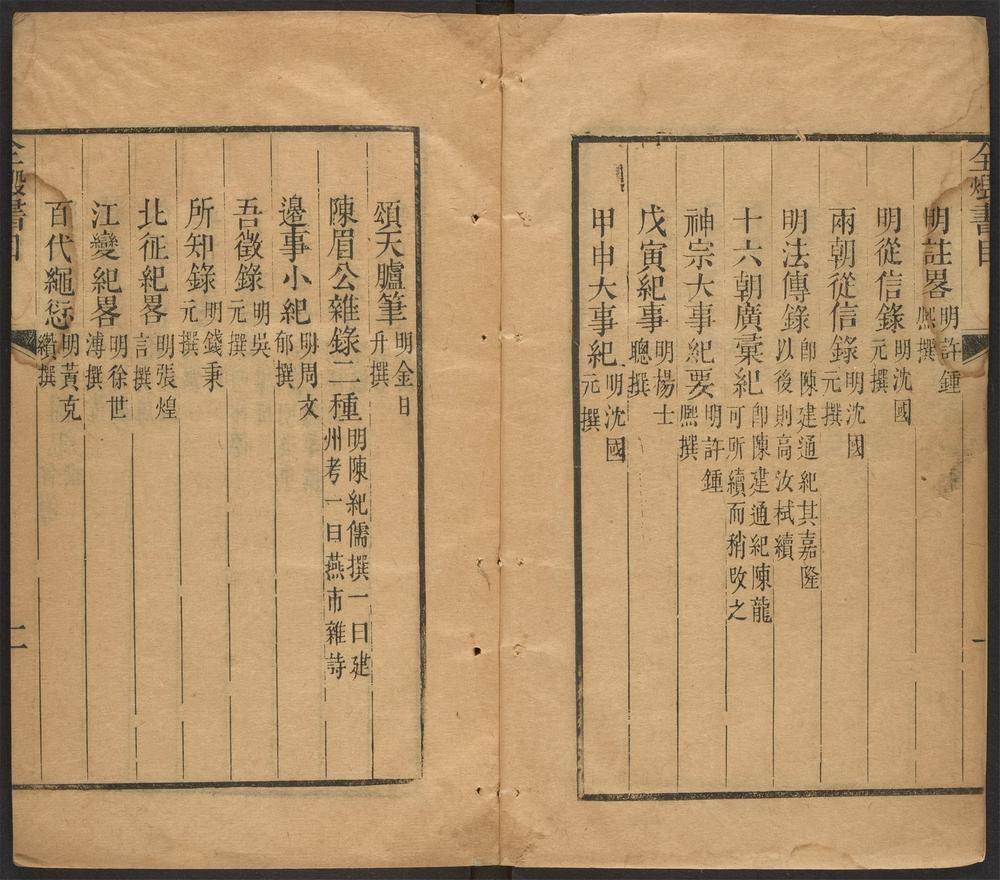 全燬書目
明註畧明許鍾熙撰
明從信錄明沈國元撰
兩朝從信錄明沈國元撰
明法傳錄卽陳建通紀其嘉隆以後則高汝栻續
十六朝廣彙紀卽陳建通紀陳龍可所續而稍改之
神宗大事紀要明許鍾熙撰
戊寅紀事明楊士聰撰
甲申大事紀明沈國元撰
一
頌天臚筆明金日升撰
陳眉公雜錄二種明陳紀儒撰一曰建州考一曰燕市雜詩
邊事小紀明周文郁撰
吾徵錄明吳元撰
所知錄明錢秉元撰
北征紀畧明張煌言撰
江變紀畧明徐世溥撰
百代繩愆明黃克纘撰
全燬書目
二